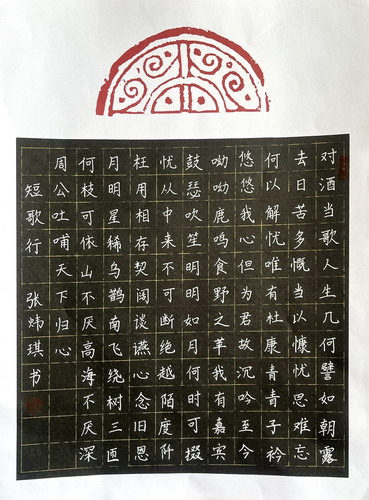 对酒当歌人生几何譬如朝露
去日苦多慨当以慷忧思难忘
何以解忧唯有杜康青青子衿
悠悠我心但为君故沉吟至今
呦呦鹿鸣食野之苹我有嘉宾
鼓瑟吹笙明明如月何时可掇
忧从中来不可断绝越陌度阡
枉用相存契阔谈讌心念旧恩
月明星稀乌鹊南飞绕树三匝
何枝可依山不厌高海不厌深
周公吐哺天下归心
短歌行 张炜琪书